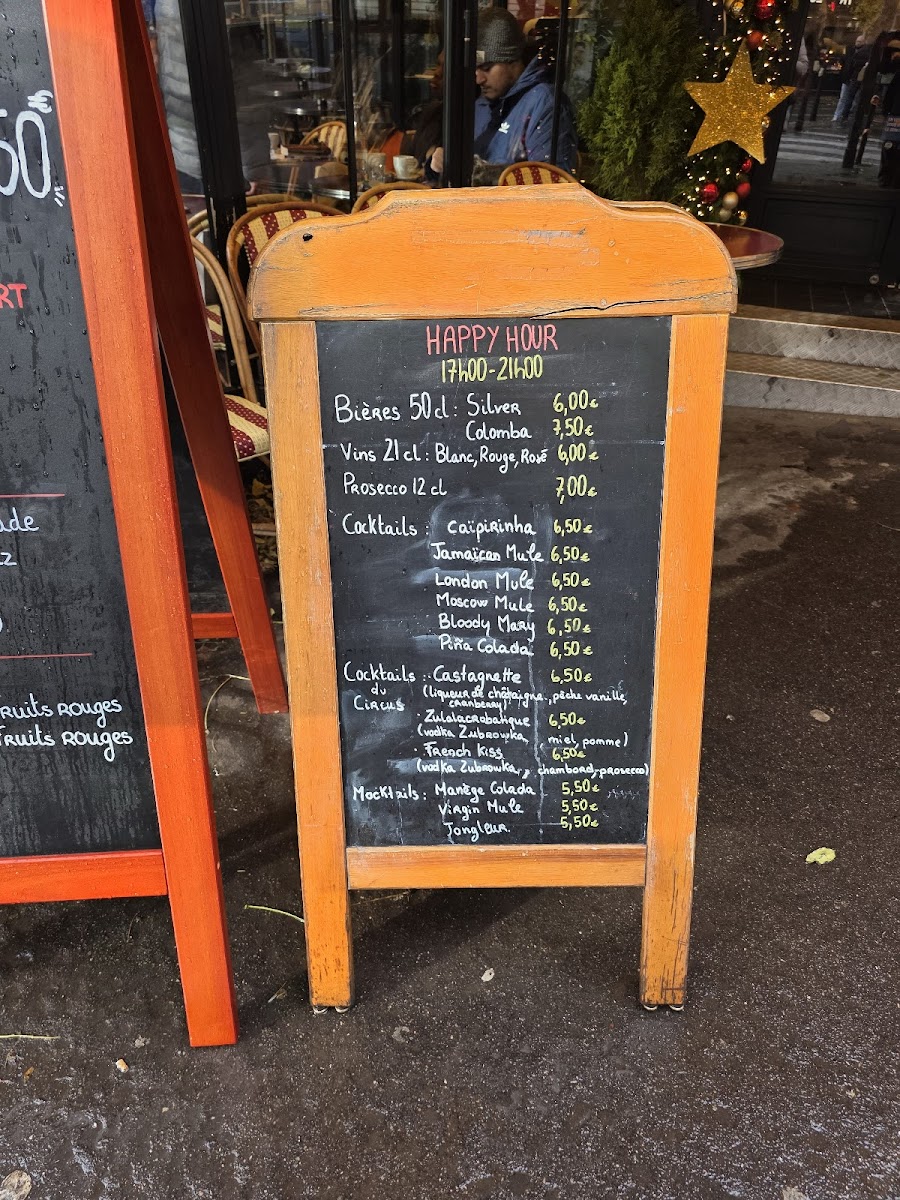 50€
RT
ade
tz
Ruits Rouges
Fruits Rouges
HAPPY HOUR
17h00-21h00
Bières 50cl: Silver 6,00€
Colomba 7,50€
Vins 21cl: Blanc, Rouge, Rosé 6,00€
Prosecco 12cl 7,00€
Cocktails: Caïpirinha 6,50€
Jamaïcan Mule 6,50€
London Mule 6,50€
Moscow Mule 6,50€
Bloody Mary 6,50€
Piña Colada 6,50€
Cocktails du Circus: · Castagnette 6,50€
(liqueur de châtaigne, pêche vanille,
cranberry)
· Zulolacrobatique 6,50€
(vodka Zubrowka, miel, pomme)
· French Kiss 6,50€
(vodka Zubrowka, chambord, prosecco)
Mocktails: Manège Colada 5,50€
Virgin Mule 5,50€
Jongleur 5,50€